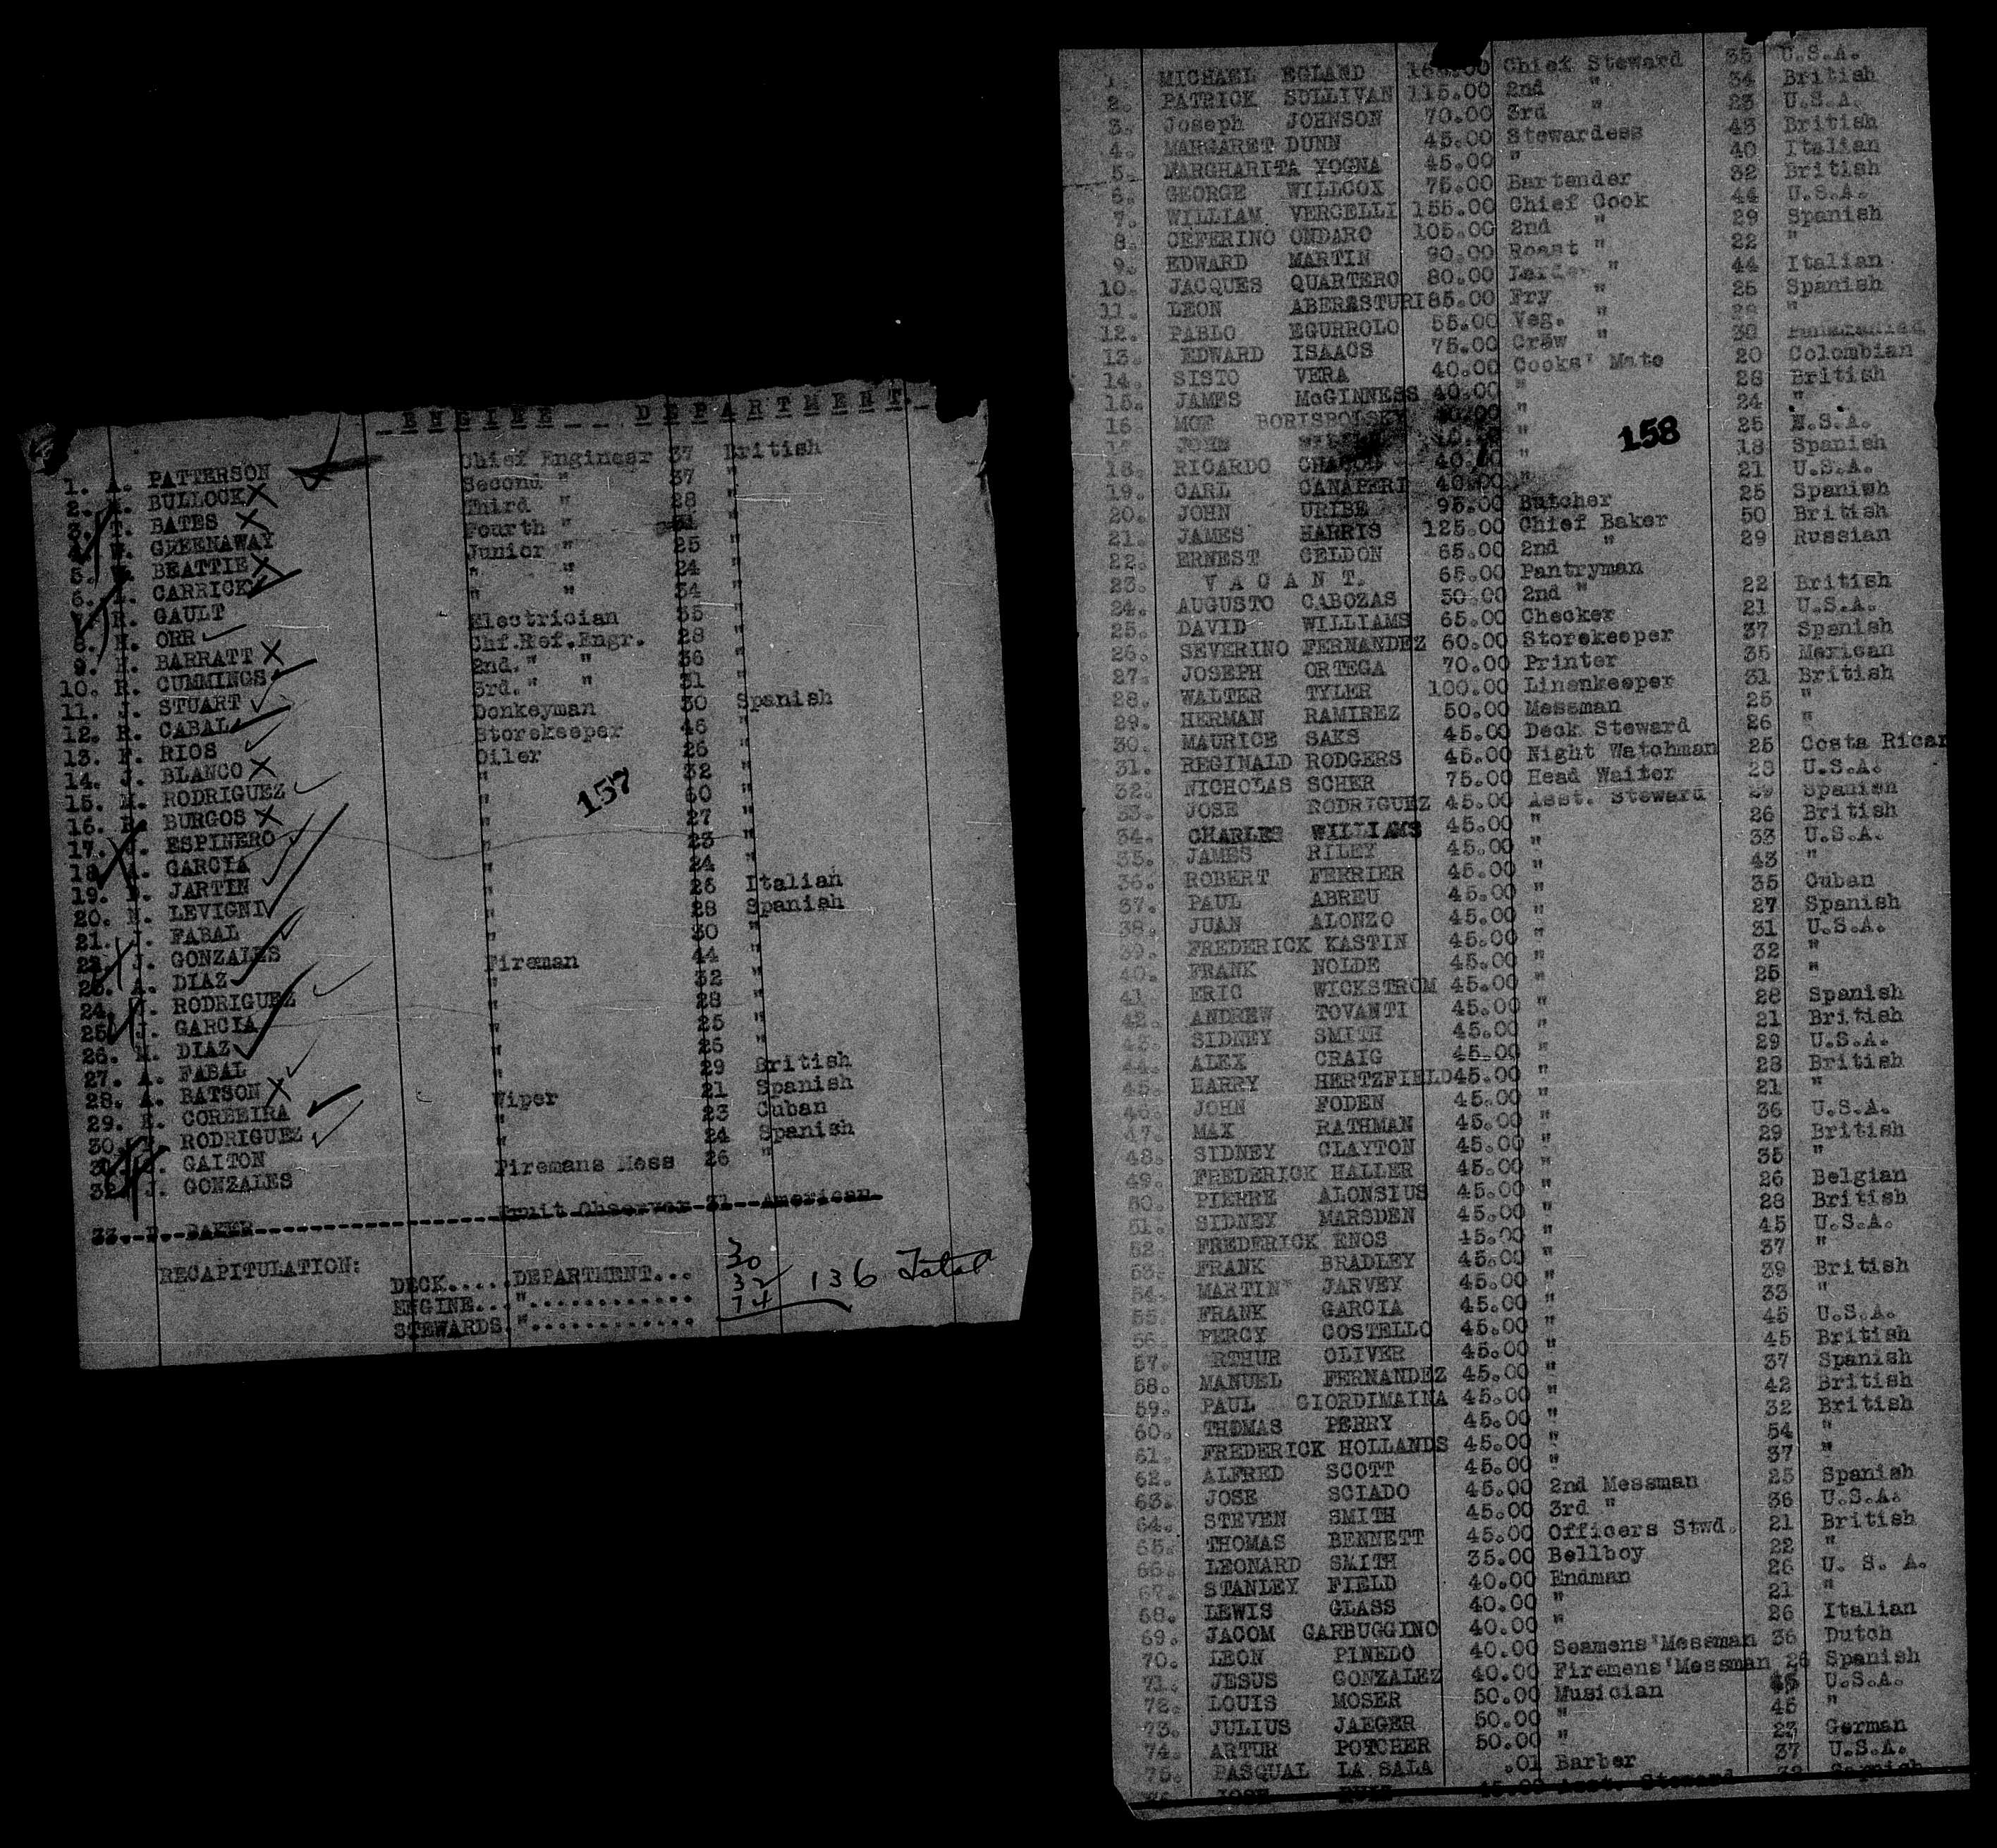 ENGINE DEPARTMENT.
1. A. PATTERSON Chief Engineer 37 British
2. BULLOCK X Second " 37 "
3. T. BATES X Third " 28 "
4. W. GREENAWAY Fourth " 31 "
5. BEATTIE X Junior " 25 "
6. CARRICK " " 24 "
7. R. GAULT " " 34 "
8. H. ORR Electrician 35 "
9. H. BARRATT X Chf.Ref.Engr. 28 "
10. R. CUMMINGS 2nd. " " 36 "
11. J. STUART 3rd. " " 31 "
12. R. CABAL Donkeyman 30 Spanish
13. F. RIOS Storekeeper 46 "
14. J. BLANCO X Oiler 26 "
15. M. RODRIGUEZ " 32 "
16. BURGOS X " 60 "
157
17. J. ESPINERO " 27 "
18. GARCIA " 23 "
19. JARTIN " 24 "
20. LEVIGNI " 26 Italian
21. FABAL " 28 Spanish
22. J. GONZALES " 30 "
23. A. DIAZ Fireman 44 "
24. RODRIGUEZ " 32 "
25. J. GARCIA " 28 "
26. M. DIAZ " 25 "
27. A. FABAL " 25 "
28. A. BATSON X " 29 British
29. E. CORBEIRA Wiper 21 Spanish
30. RODRIGUEZ " 23 Cuban
31. GAITON " 24 Spanish
32. J. GONZALES Firemans Mess 26 "
33. BAKER Fruit Observer 31 American
RECAPITULATION:
DECK.....DEPARTMENT... 30
ENGINE..."............ 32 136 Total
STEWARDS."............ 74
1. MICHAEL EGLAND Chief Steward 35 U.S.A.
2. PATRICK SULLIVAN 115.00 2nd " 34 British
3. Joseph JOHNSON 70.00 3rd " 23 U.S.A.
4. MARGARET DUNN 45.00 Stewardess 43 British
5. MARGHARITA YOGNA 45.00 " 40 Italian
6. GEORGE WILLCOX 75.00 Bartender 32 British
7. WILLIAM VERCELLI 155.00 Chief Cook 44 U.S.A.
8. CEFERINO ONDARO 105.00 2nd " 29 Spanish
9. EDWARD MARTIN 90.00 Roast " 22 "
10. JACQUES QUARTERO 80.00 Larder " 44 Italian
11. LEON ABERASTURI 85.00 Fry " 25 Spanish
12. PABLO EGURROLO 55.00 Veg. " 28 "
13. EDWARD ISAACS 75.00 Crew " 30
14. SISTO VERA 40.00 Cooks' Mate 20 Colombian
15. JAMES McGINNESS 40.00 " 28 British
16. MOE BORISBOLSKY 40.00 " 24 "
17. JOHN 40.00 " 25 U.S.A.
158
18. RICARDO 40.00 " 18 Spanish
19. CARL CANAPERI 40.00 " 21 U.S.A.
20. JOHN URIBE 95.00 Butcher 25 Spanish
21. JAMES HARRIS 125.00 Chief Baker 50 British
22. ERNEST GELDON 65.00 2nd " 29 Russian
23. V A C A N T. 65.00 Pantryman
24. AUGUSTO CABOZAS 50.00 2nd " 22 British
25. DAVID WILLIAMS 65.00 Checker 21 U.S.A.
26. SEVERINO FERNANDEZ 60.00 Storekeeper 37 Spanish
27. JOSEPH ORTEGA 70.00 Printer 35 Mexican
28. WALTER TYLER 100.00 Linenkeeper 31 British
29. HERMAN RAMIREZ 50.00 Messman 25 "
30. MAURICE SAKS 45.00 Deck Steward 26 "
31. REGINALD RODGERS 45.00 Night Watchman 25 Costa Rican
32. NICHOLAS SCHER 75.00 Head Waiter 28 U.S.A.
33. JOSE RODRIGUEZ 45.00 Asst. Steward 29 Spanish
34. CHARLES WILLIAMS 45.00 " 26 British
35. JAMES RILEY 45.00 " 33 U.S.A.
36. ROBERT FERRIER 45.00 " 43 "
37. PAUL ABREU 45.00 " 35 Cuban
38. JUAN ALONZO 45.00 " 27 Spanish
39. FREDERICK KASTIN 45.00 " 31 U.S.A.
40. FRANK NOLDE 45.00 " 32 "
41. ERIC WICKSTROM 45.00 " 25 "
42. ANDREW TOVANTI 45.00 " 28 Spanish
43. SIDNEY SMITH 45.00 " 21 British
44. ALEX CRAIG 45.00 " 29 U.S.A.
45. HARRY HERTZFIELD 45.00 " 28 British
46. JOHN FODEN 45.00 " 21 "
47. MAX RATHMAN 45.00 " 36 U.S.A.
48. SIDNEY CLAYTON 45.00 " 29 British
49. FREDERICK HALLER 45.00 " 35 "
50. PIERRE ALONSIUS 45.00 " 26 Belgian
51. SIDNEY MARSDEN 45.00 " 28 British
52. FREDERICK ENOS 45.00 " 45 U.S.A.
53. FRANK BRADLEY 45.00 " 37 "
54. MARTIN JARVEY 45.00 " 39 British
55. FRANK GARCIA 45.00 " 33 "
56. PERCY COSTELLO 45.00 " 45 U.S.A.
57. RTHUR OLIVER 45.00 " 45 British
58. MANUEL FERNANDEZ 45.00 " 37 Spanish
59. PAUL GIORDIMAINA 45.00 " 42 British
60. THOMAS PERRY 45.00 " 32 British
61. FREDERICK HOLLANDS 45.00 " 54 "
62. ALFRED SCOTT 45.00 " 37 "
63. JOSE SCIADO 45.00 2nd Messman 25 Spanish
64. STEVEN SMITH 45.00 3rd " 36 U.S.A.
65. THOMAS BENNETT 45.00 Officers Stwd. 21 British
66. LEONARD SMITH 35.00 Bellboy 22 "
67. STANLEY FIELD 40.00 Endman 26 U. S. A.
68. LEWIS GLASS 40.00 " 21 "
69. JACOM GARBUGGINO 40.00 " 26 Italian
70. LEON PINEDO 40.00 Seamens'Messman 36 Dutch
71. JESUS GONZALEZ 40.00 Firemens'Messman 26 Spanish
72. LOUIS MOSER 50.00 Musician 45 U.S.A.
73. JULIUS JAEGER 50.00 " 45 "
74. ARTUR POTCHER 50.00 " 23 German
75. PASQUAL LA SALA .01 Barber 37 U.S.A.
76. JOSE 45.00 Asst. Steward 32 Spanish